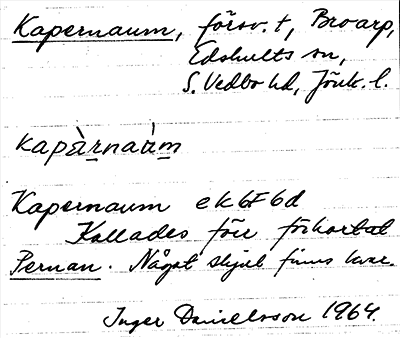 Kapernaum, försv. t, Broarp,
Edshults sn,
S. Vedbo hd, Jönk. l.
kapàrnaùm
Kapernaum ek 6F6d
Kallades förr förkortat
Pernan. Något skjul finns kvar.
Inger Danielsson 1964.